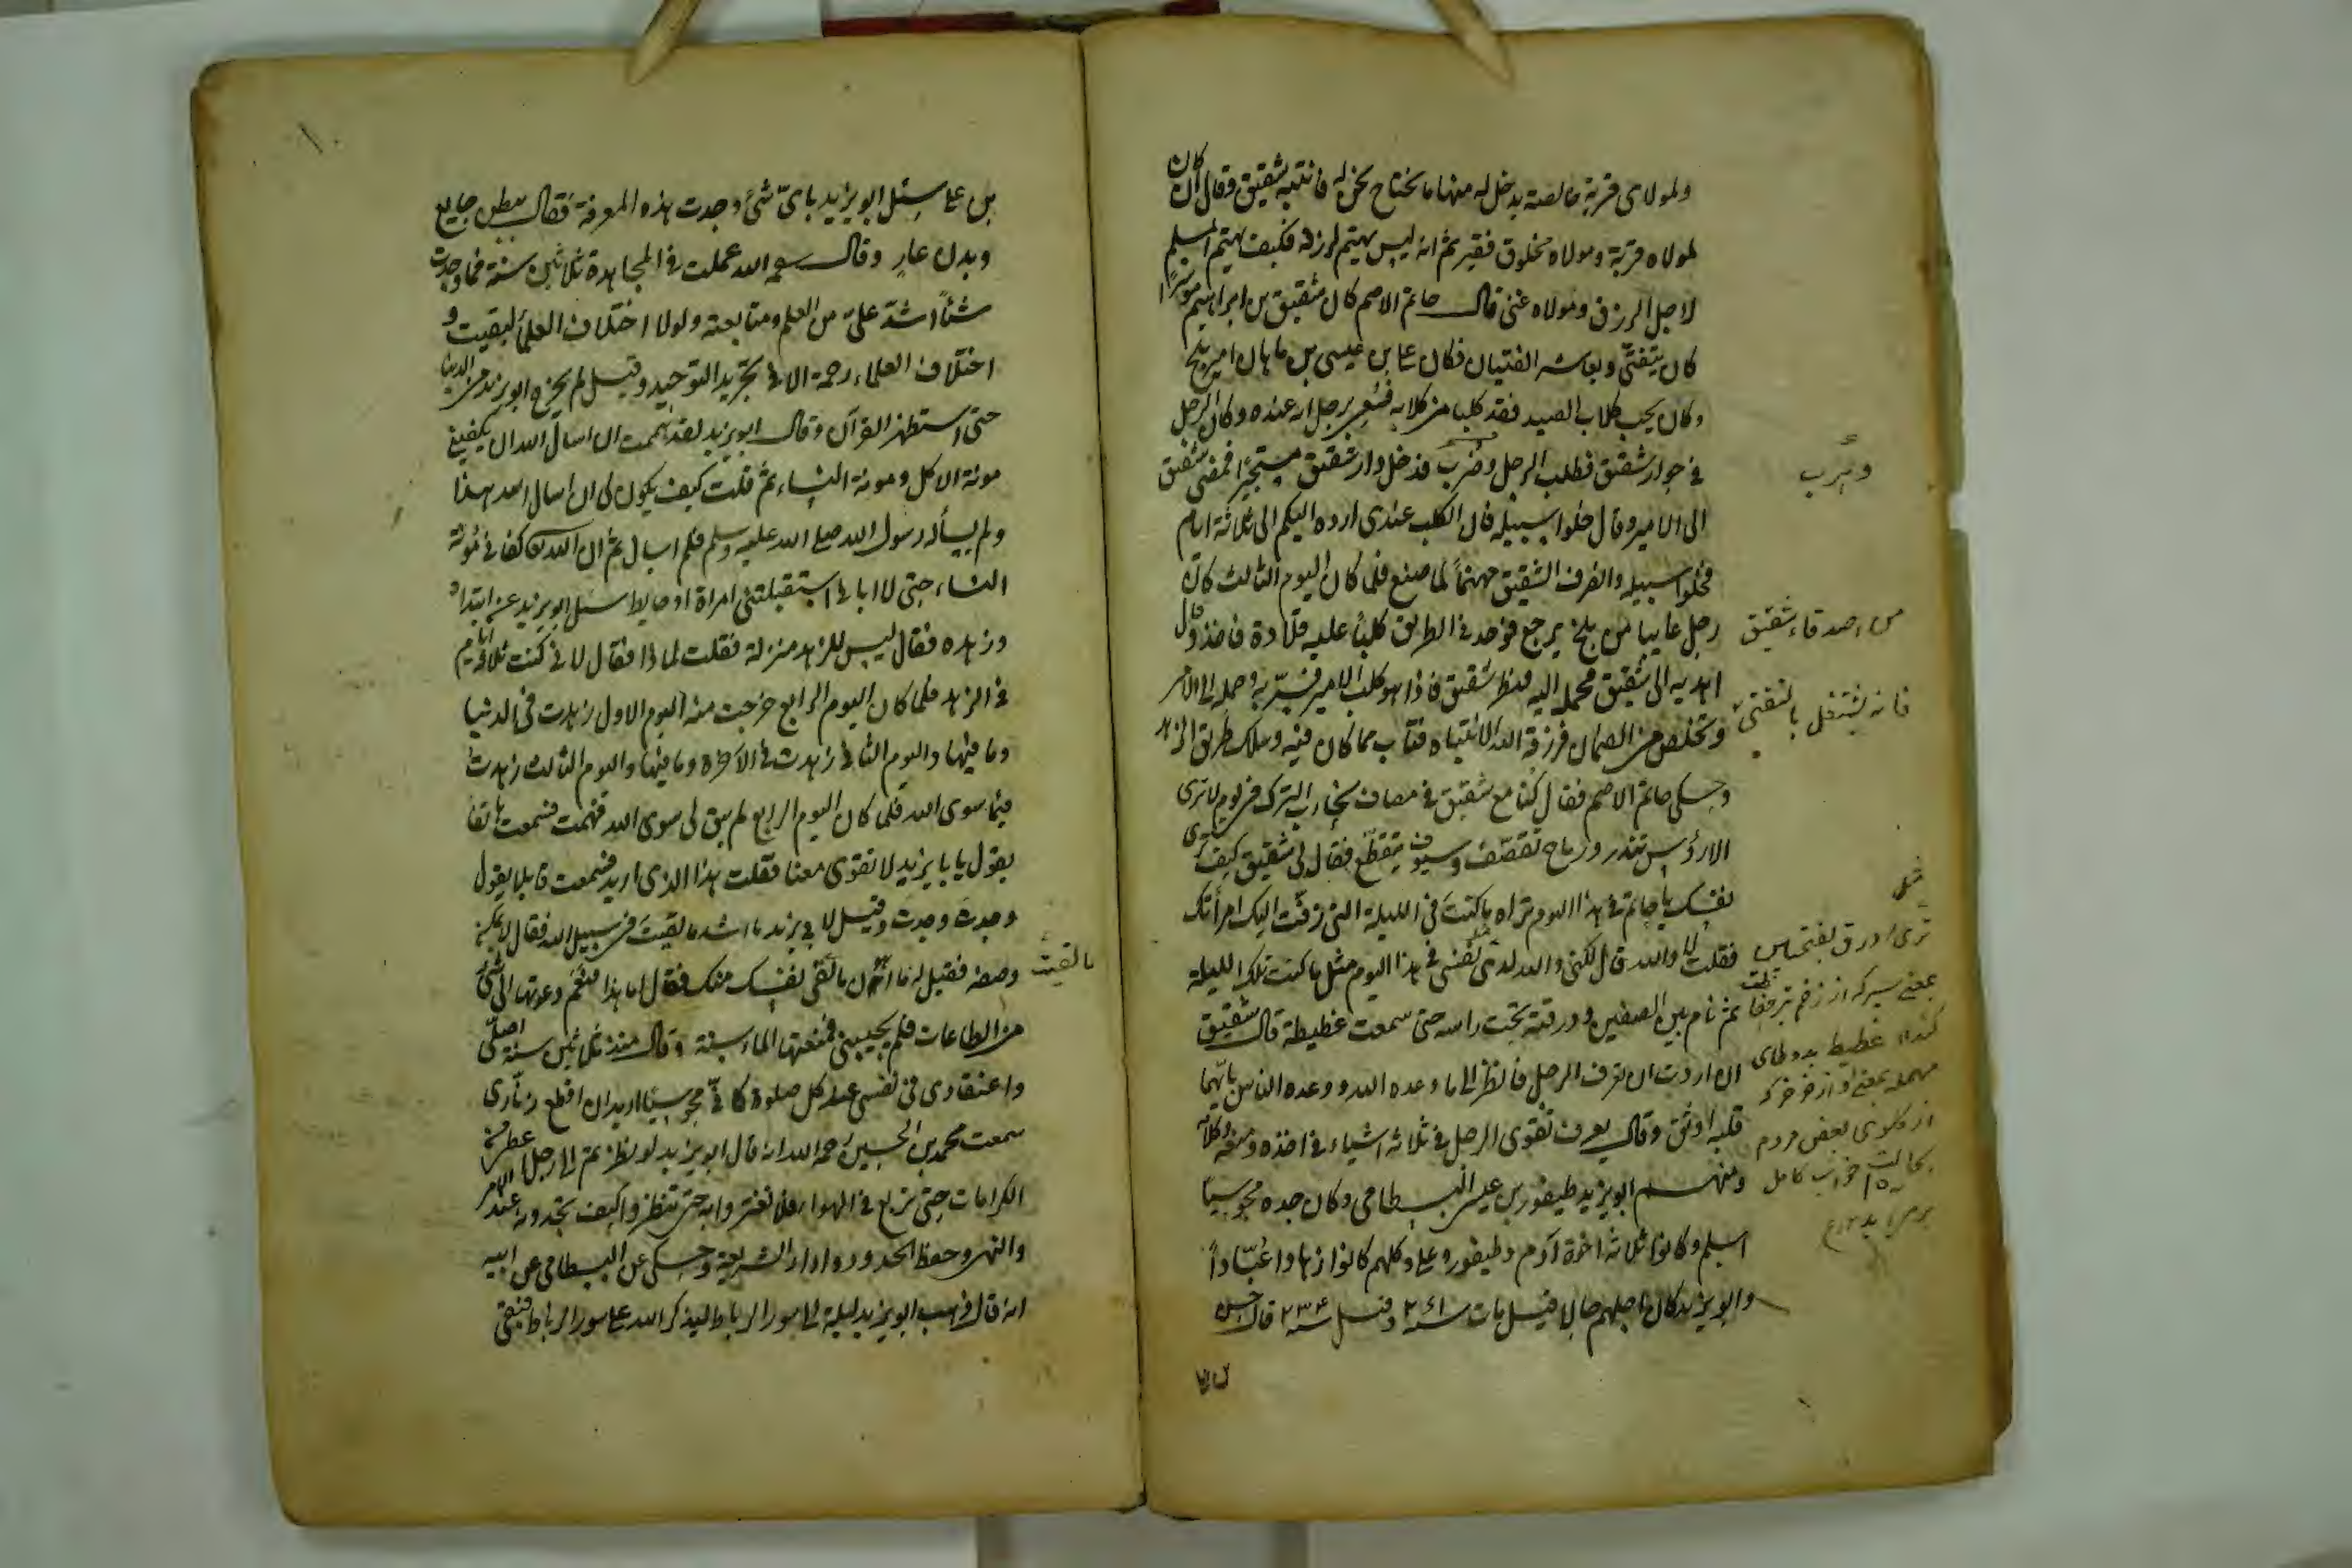 ولمولای قریة خالصة یدخل له منها ما یحتاج نحن له فانتبه شقیق وقال ان کان
لمولاه قریة ومولاه مخلوق فقیر ثم انه لیس یهتم لرزقه فکیف یهتم المسلم
لاجل الرزق ومولاه غنی قال حاتم الاصم کان شقیق بن ابراهیم موسرًا
کان یتفتّی ویعاشر الفتیان فکان علی بن عیسی بن ماهان امیر بلخ
وکان یحب کلاب الصید فقد کلبا من کلابه فسُعی برجل انه عنده وکان الرجل
فی جوار شقیق فطلب الرجل وضرب فدخل دار شقیق مستجیرًا فمضی شقیق
الی الامیر وقال خلوا سبیله فان الکلب عندی ارده الیکم الی ثلاثة ایام
فخلوا سبیله وانصرف الشقیق مهتمًا لما صنع فلما کان الیوم الثالث کان
رجل غایبا من بلخ یرجع فوجد فی الطریق کلبًا علیه قلادة فاخذه وقال
اهدیه الی شقیق فحمله الیه فنظر شقیق فاذا هو کلب الامیر فسرّ به وحمله الی الامیر
وتخلص من الضمان فرزقه الله الانتباه فتاب مما کان فیه وسلک طریق الزهد
وحکی حاتم الاصم فقال کنا مع شقیق فی مصاف نحارب الترک فی یوم لا تری
الا رؤس تندر ورماح تقصّف وسیوف تتقطّع فقال لی شقیق کیف تری
نفسک یا حاتم فی هذا الیوم تراه ما کنتَ فی اللیلة التی زفّت الیک امرأتک
فقلت لا والله قال لکنی والله اری نفسی فی هذا الیوم مثل ما کنت تلک اللیلة
ثم نام بین الصفین ودرقته تحت راسه حتی سمعت غطیطه قال شقیق
ان اردت ان تعرف الرجل فانظر الی ما وعده الله ووعده الناس بایّهما
قلبه اوثق وقال یعرف تقوی الرجل فی ثلاثه اشیاء فی اخذه ومنعه وکلامه
ومنهم ابو یزید طیفور بن عیسی البسطامی وکان جده مجوسیًا
اسلم وکانوا ثلاثه اخوة آدم وطیفور وعلی وکلهم کانوا زهادا عُبّادًا
وابو یزید کان اجلهم حالا قیل مات سنه ۲۶۱ وقیل سنه ۲۳۴ قال حسن
وهرب
من اصدقاء شقیق
فانه یشتغل بالتفتی
تری درق بفتحتین
بمعنی سپر که از زخم تیر حفاظت
کند ۱۲ غطیط بدو طای
مهمله بمعنی آواز خر خر که
از گلوی بعض مردم
بحالت خواب کامل
برمی آید ۱۲
بن علی سئل ابو یزید بایّ شیٔ وجدت هذه المعرفة فقال ببطن جایع
وبدن عارٍ وقال رحمه الله عملت فی المجاهدة ثلاثین سنة فما وجدت
شیئًا اشدّ علیّ من العلم ومتابعته ولولا اختلاف العلماء لبقیت و
اختلاف العلماء رحمة الا فی تجرید التوحید وقیل لم یخرج ابو یزید من الدنیا
حتی استظهر القرآن وقال ابو یزید لقد هممت ان اسأل الله ان یکفینی
مونة الاکل ومونة النساء ثم قلت کیف یکون لی ان اسال الله هذا
ولم یسأله رسول الله صلی الله علیه وسلم فلم اسال ثم ان الله کفانی مُونة
النساء حتی لا ابالی استقبلتنی امراة او حایط سئل ابو یزید عن ابتداه
وزهده فقال لیس للزهد منزلة فقلت لماذا فقال لانی کنت ثلاثة ایام
فی الزهد فلما کان الیوم الرابع خرجت منه الیوم الاول زهدت فی الدنیا
وما فیها والیوم الثانی زهدت فی الآخرة وما فیها والیوم الثالث زهدت
فیما سوی الله فلما کان الیوم الرابع لم یبق لی سوی الله فهمت فسمعت هاتفا
یقول یا بایزید لا تقوی معنا فقلت هذا الذی ارید فسمعت قایلا یقول
وجدتَ وجدتَ وقیل لابی یزید ما اشد ما لقیتَ فی سبیل الله فقال لا یمکن
وصفه فقیل له ما اهون ما لقی نفسک منک فقال اما هذا فنعم دعوتها الی شیٔ
من الطاعات فلم یجیبنی فمنعتها الماء سنة وقال منذ ثلاثین سنة اصلّی
واعتقادی فی نفسی عند کل صلوة کانّی مجوسی ارید ان اقطع زنّاری
سمعت محمد بن الحسین رحمه الله انه قال ابو یزید لو نظرتم الی رجل اعطی من
الکرامات حتی تربع فی الهواء فلا تغتروا به حتی تنظروا کیف تجدونه عند الامر
والنهی وحفظ الحدود واداء الشریعة وحکی عن البسطامی عن ابیه
انه قال ذهب ابو یزید لیلة الی سور الرباط لیذکر الله علی سور الرباط فبقی
ما لقیت
۱۰